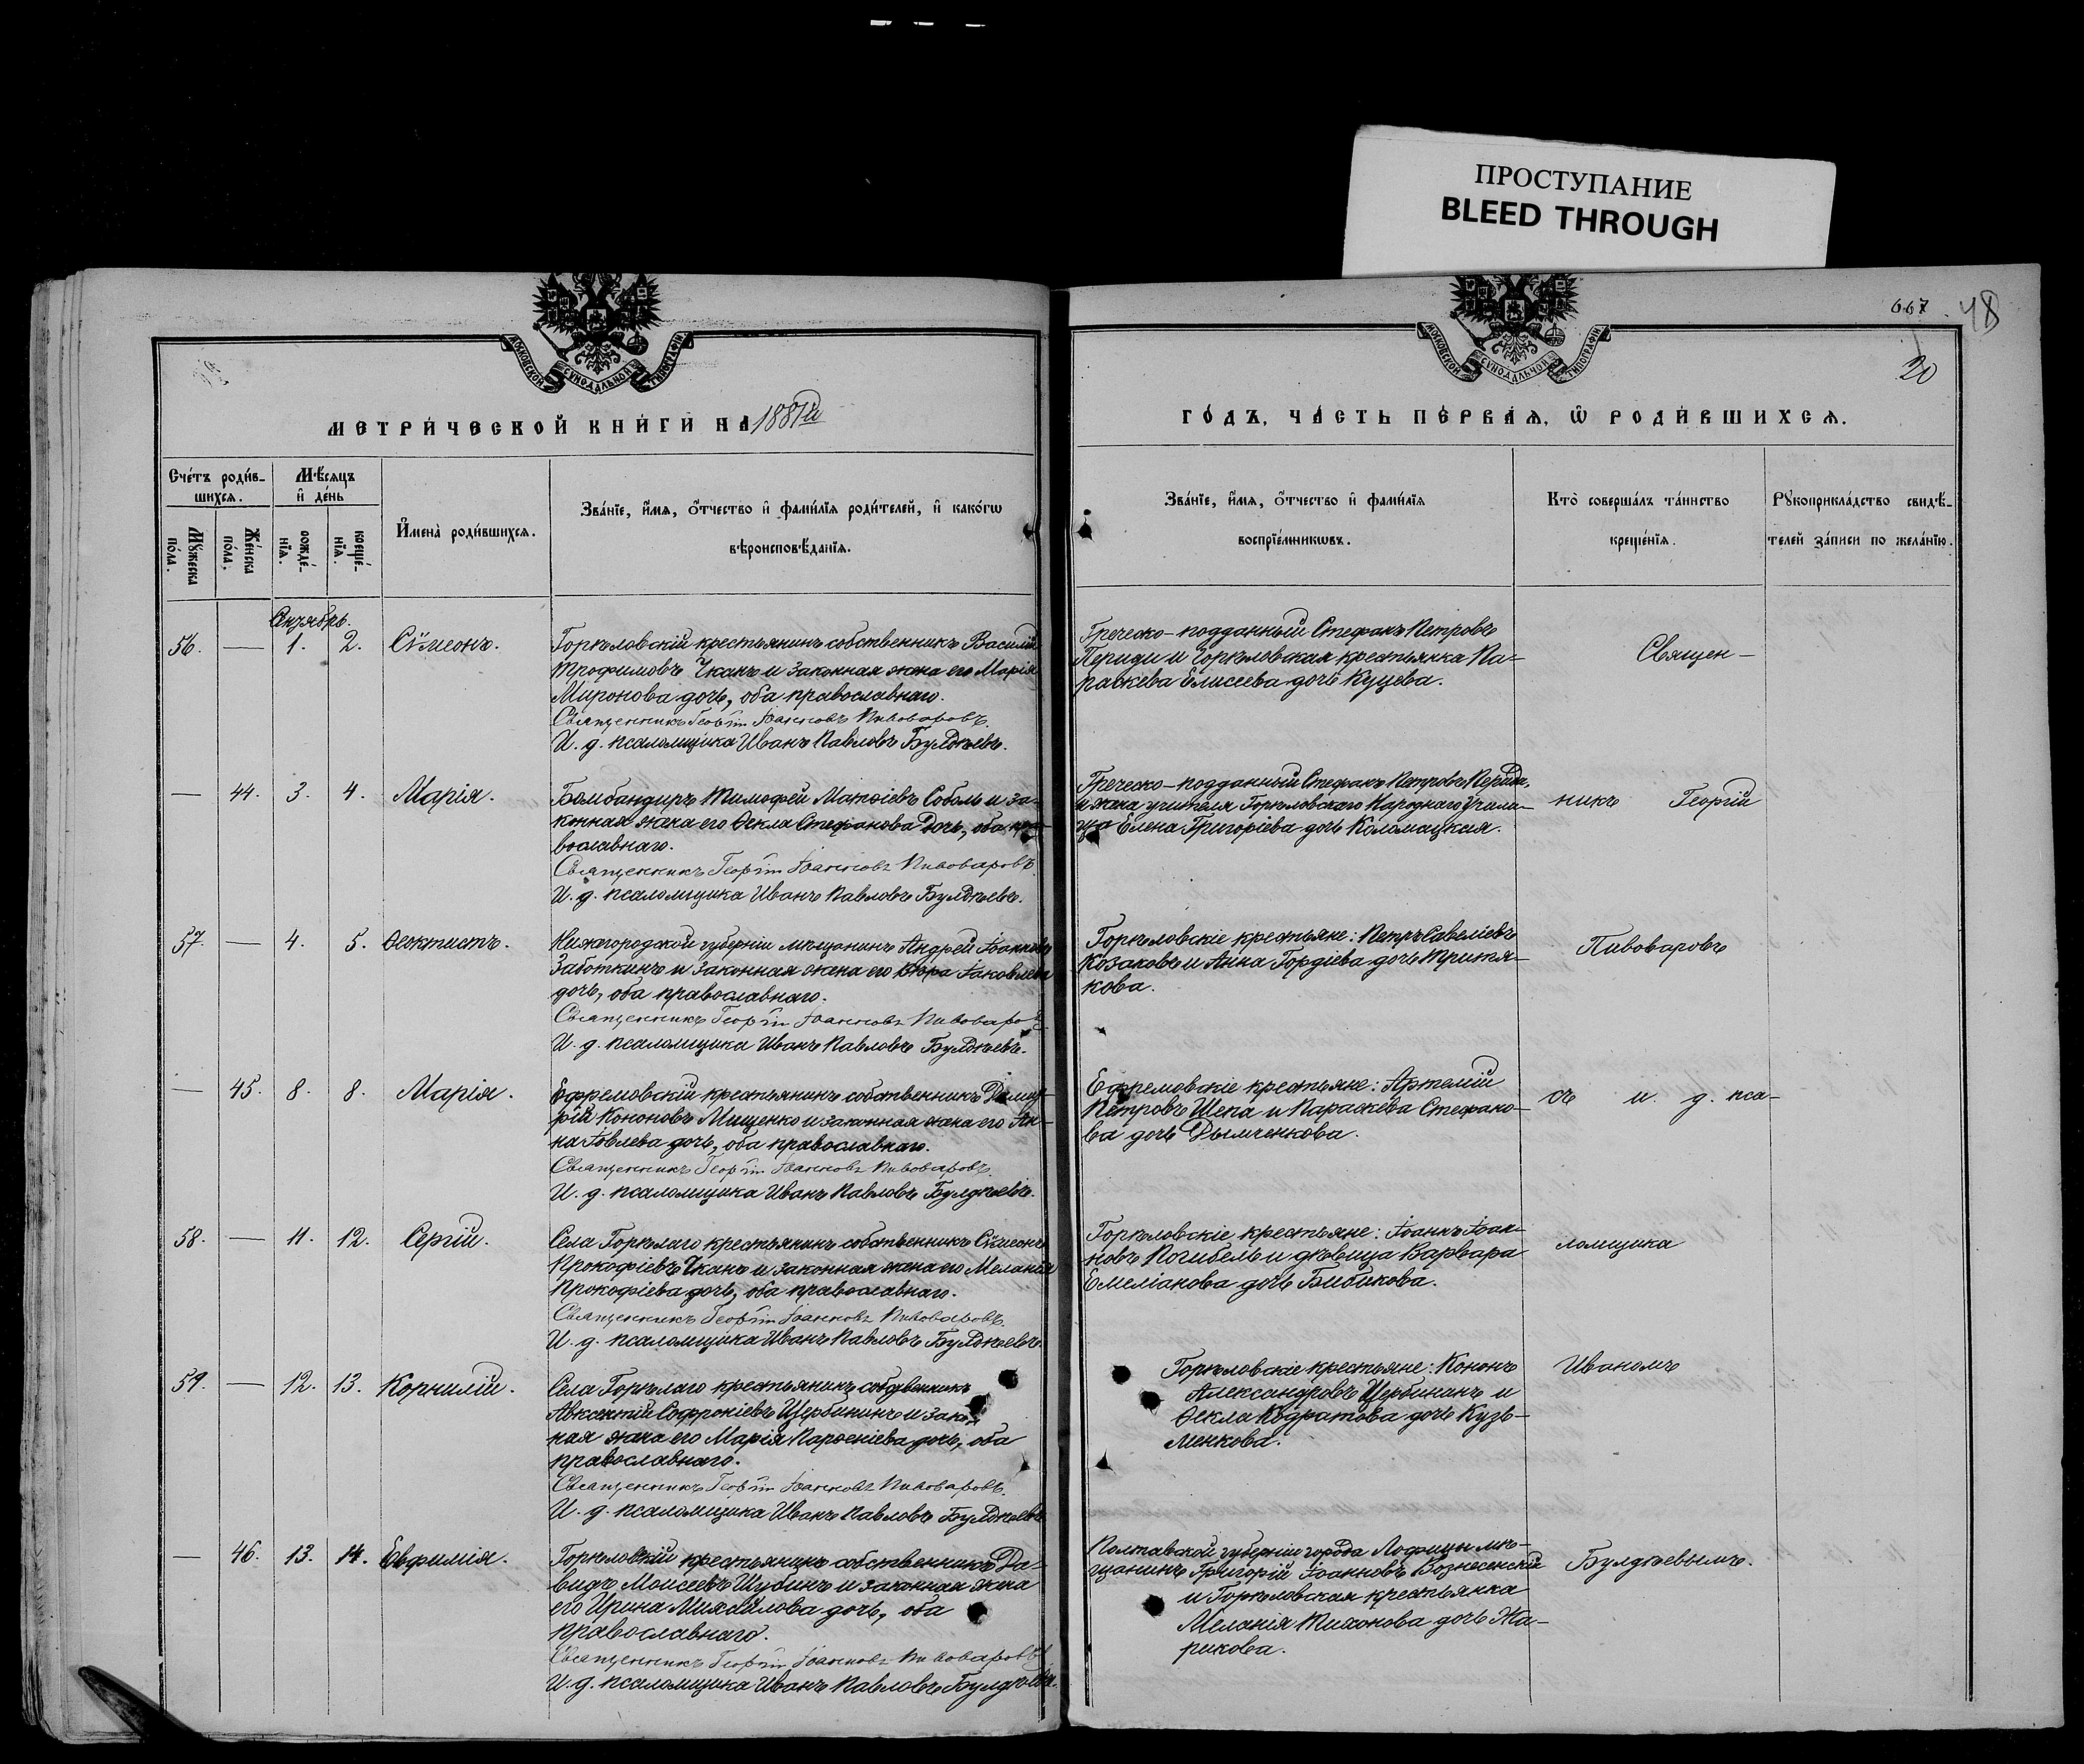 ПРОСТУПАНИЕ
BLEED THROUGH
667
48
20
МОСКОВСКОЙ СѴНОДАЛЬНОЙ ТИПОГРАФІИ
МОСКОВСКОЙ СѴНОДАЛЬНОЙ ТИПОГРАФІИ
МЕТРИ́ЧЕСКОЙ КНИ́ГИ НА 1881й
ГО́ДЪ, ЧА́СТЬ ПЕ́РВАЯ, Ѽ РОДИ́ВШИХСЯ.
Сче́тъ роди́в-
шихся.
Мѣ́сяцъ
и де́нь
Мꙋжеска
по́ла.
Же́нска
по́ла.
рожде́-
нїя.
креще́-
нїя.
И҆мена̀ роди́вшихся.
Зва́нїе, и҆́мя, ѻ҆́тчество и҆ фами́лїя роди́телей, и҆ како́гѡ
вѣроисповѣ́данїя.
Зва́нїе, и҆́мя, ѻ҆́тчество и҆ фами́лїя
воспрїе́мникѡвъ.
Кто̀ соверша́лъ та́инство
креще́нїя.
Рꙋкоприкла́дство свидѣ́-
телей за́писи по жела́нїю.
Октябрь.
56. — 1. 2. Сѵмеонъ.
Горѣловскій крестьянинъ собственникъ Василій
Трофимовъ Ткачъ и законная жена его Марія
Миронова дочь, оба православнаго.
Священникъ Георгій Іоанновъ Пивоваровъ.
И. д. псаломщика Иванъ Павловъ Булдѣевъ.
Греческо-подданный Стефанъ Петровъ
Периди и Горѣловская крестьянка Па-
раскева Елисеева дочь Куцева.
Священ-
— 44. 3. 4. Марія.
Бомбандиръ Тимофей Матѳіевъ Соболь и за-
конная жена его Ѳекла Стефанова дочь, оба пра-
вославнаго.
Священникъ Георгій Іоанновъ Пивоваровъ.
И. д. псаломщика Иванъ Павловъ Булдѣевъ.
Греческо-подданный Стефанъ Петровъ Периди,
и жена учителя Горѣловскаго Народнаго Учили-
ща Елена Григоріева дочь Коломацкая.
никъ Георгій
57. — 4. 5. Ѳеоктистъ.
Нижегородской губерніи мѣщанинъ Андрей Іоанновъ
Заботкинъ и законная жена его Іаковлева
дочь, оба православнаго.
Священникъ Георгій Іоанновъ Пивоваровъ
И. д. псаломщика Иванъ Павловъ Булдѣевъ.
Горѣловскіе крестьяне: Петръ Савеліевъ
Козаковъ и Анна Гордіева дочь Притя-
кова.
Пивоваровъ
— 45. 8. 8. Марія.
Ефремовскій крестьянинъ собственникъ Димит-
рій Кононовъ Мищенко и законная жена его Ан-
на Іовлева дочь, оба православнаго.
Священникъ Георгій Іоанновъ Пивоваровъ.
И. д. псаломщика Иванъ Павловъ Булдѣевъ.
Ефремовскіе крестьяне: Артемій
Петровъ Шепа и Параскева Стефано-
ва дочь Дымченкова.
съ и. д. пса-
58. — 11. 12. Сергій.
Села Горѣлаго крестьянинъ собственникъ Сѵмеонъ
Прокофіевъ Ткачъ и законная жена его Меланія
Прокофіева дочь, оба православнаго.
Священникъ Георгій Іоанновъ Пивоваровъ.
И. д. псаломщика Иванъ Павловъ Булдѣевъ.
Горѣловскіе крестьяне: Іоаннъ Іоан-
новъ Погибель и дѣвица Варвара
Емеліанова дочь Бибикова.
ломщика
59. — 12. 13. Корнилій.
Села Горѣлаго крестьянинъ собственникъ
Авксентій Софроніевъ Щербининъ и закон-
ная жена его Марія Парѳеніева дочь, оба
православнаго.
Священникъ Георгій Іоанновъ Пивоваровъ.
И. д. псаломщика Иванъ Павловъ Булдѣевъ.
Горѣловскіе крестьяне: Кононъ
Александровъ Щербининъ и
Ѳекла Кодратова дочь Кузь-
менкова.
Иваномъ
— 46. 13. 14. Евфимія.
Горѣловскій крестьянинъ собственникъ Да-
видъ Моисеевъ Шубинъ и законная жена
его Ирина Михайлова дочь, оба
православнаго.
Священникъ Георгій Іоанновъ Пивоваровъ.
И. д. псаломщика Иванъ Павловъ Булдѣевъ.
Полтавской губерніи города Лофицы мѣ-
щанинъ Григорій Іоанновъ Вознесенскій
и Горѣловская крестьянка
Меланія Тихонова дочь Жа-
рикова.
Булдѣевымъ.